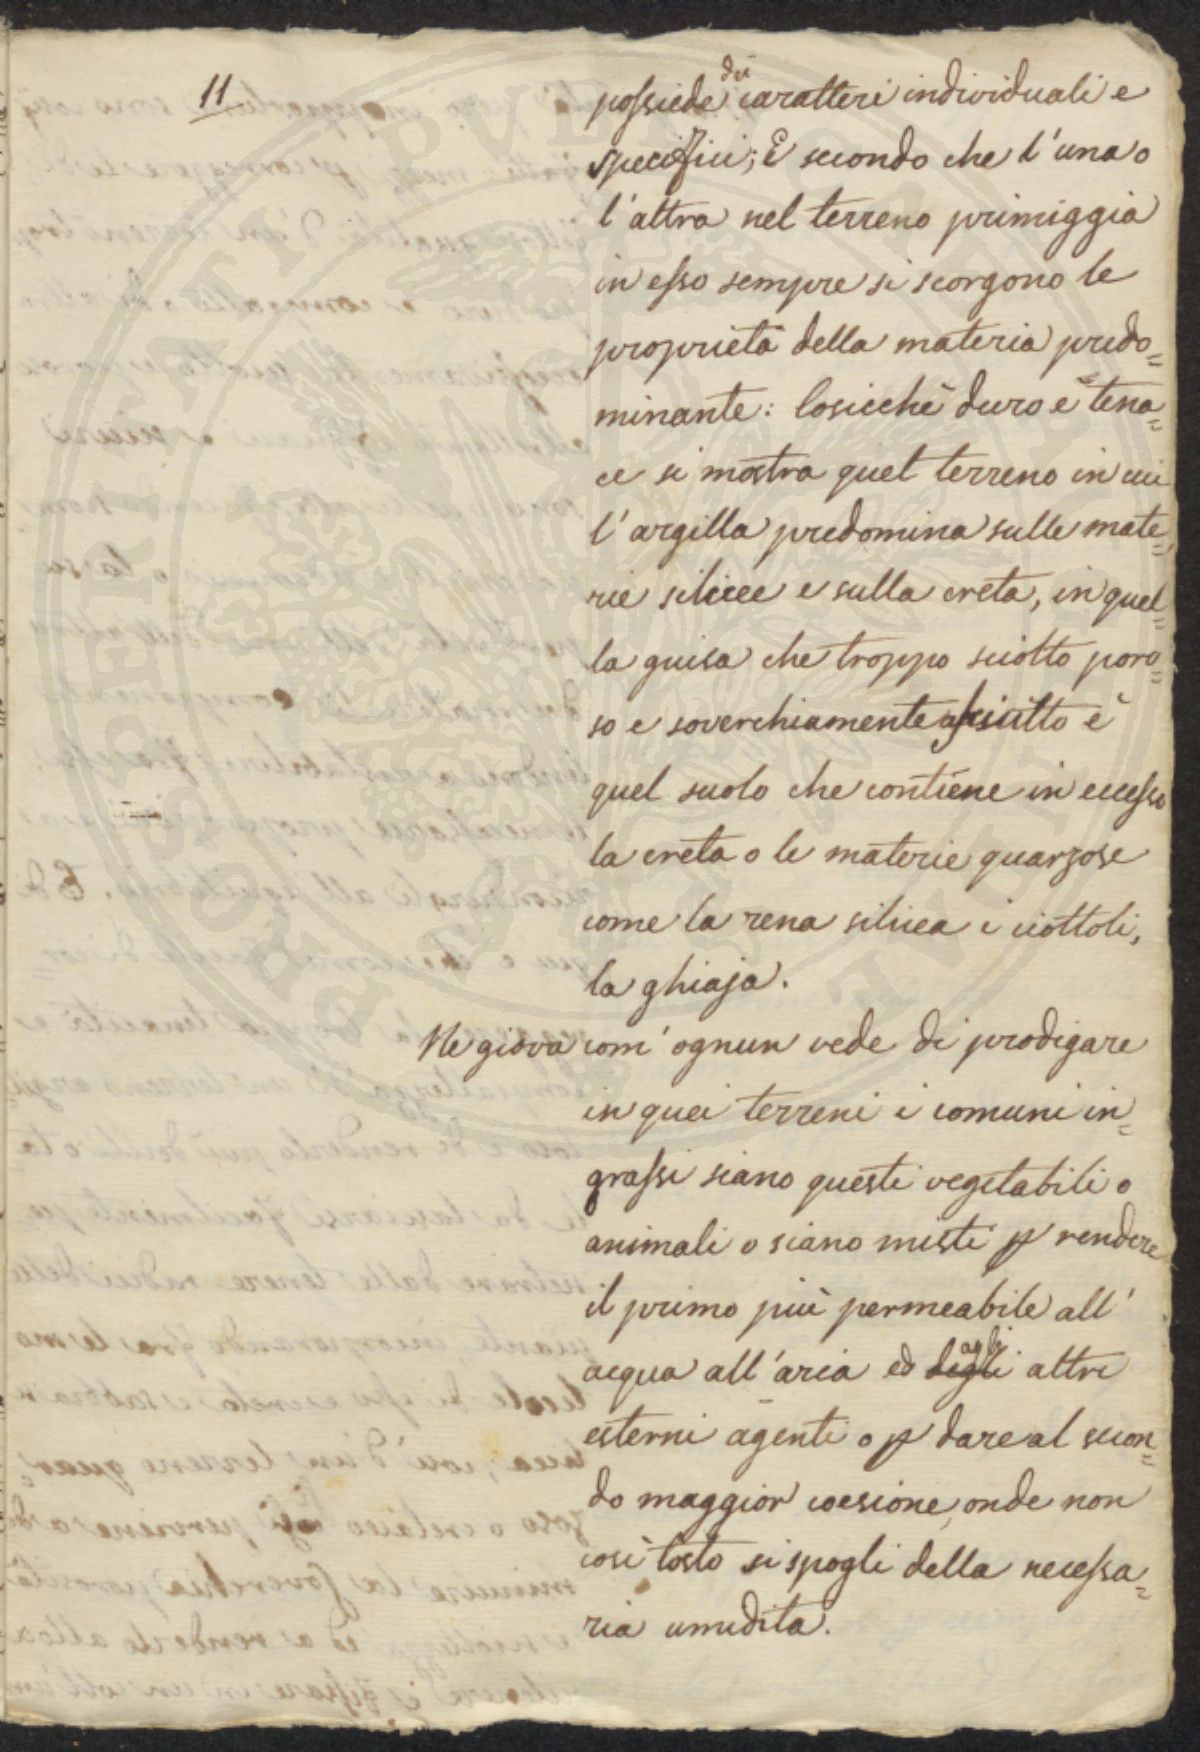 11
possiede dei caratteri individuali e
specifici; E secondo che l'una o
l'altra nel terreno primiggia
in esso sempre si scorgono le
proprietà della materia predo=
minante: Cosicchè duro e tena=
ce si mostra quel terreno in cui
l'argilla predomina sulle mate=
rie silicee e sulla creta, in quel=
la guisa che troppo sciolto poro=
so e soverchiamente asciutto è
quel suolo che contiene in eccesso
la creta o le materie quarzose
come la rena silicea i ciottoli,
la ghiaja.
Ne giova com' ognun vede di prodigare
in quei terreni i comuni in=
grassi siano questi vegetabili o
animali o siano misti p rendere
il primo più permeabile all'
acqua all'aria ed agli altri
esterni agenti o p dare al secon=
do maggior coesione, onde non
così tosto si spogli della necessa=
ria umidità.
PROSPERITATI PVBLICAE